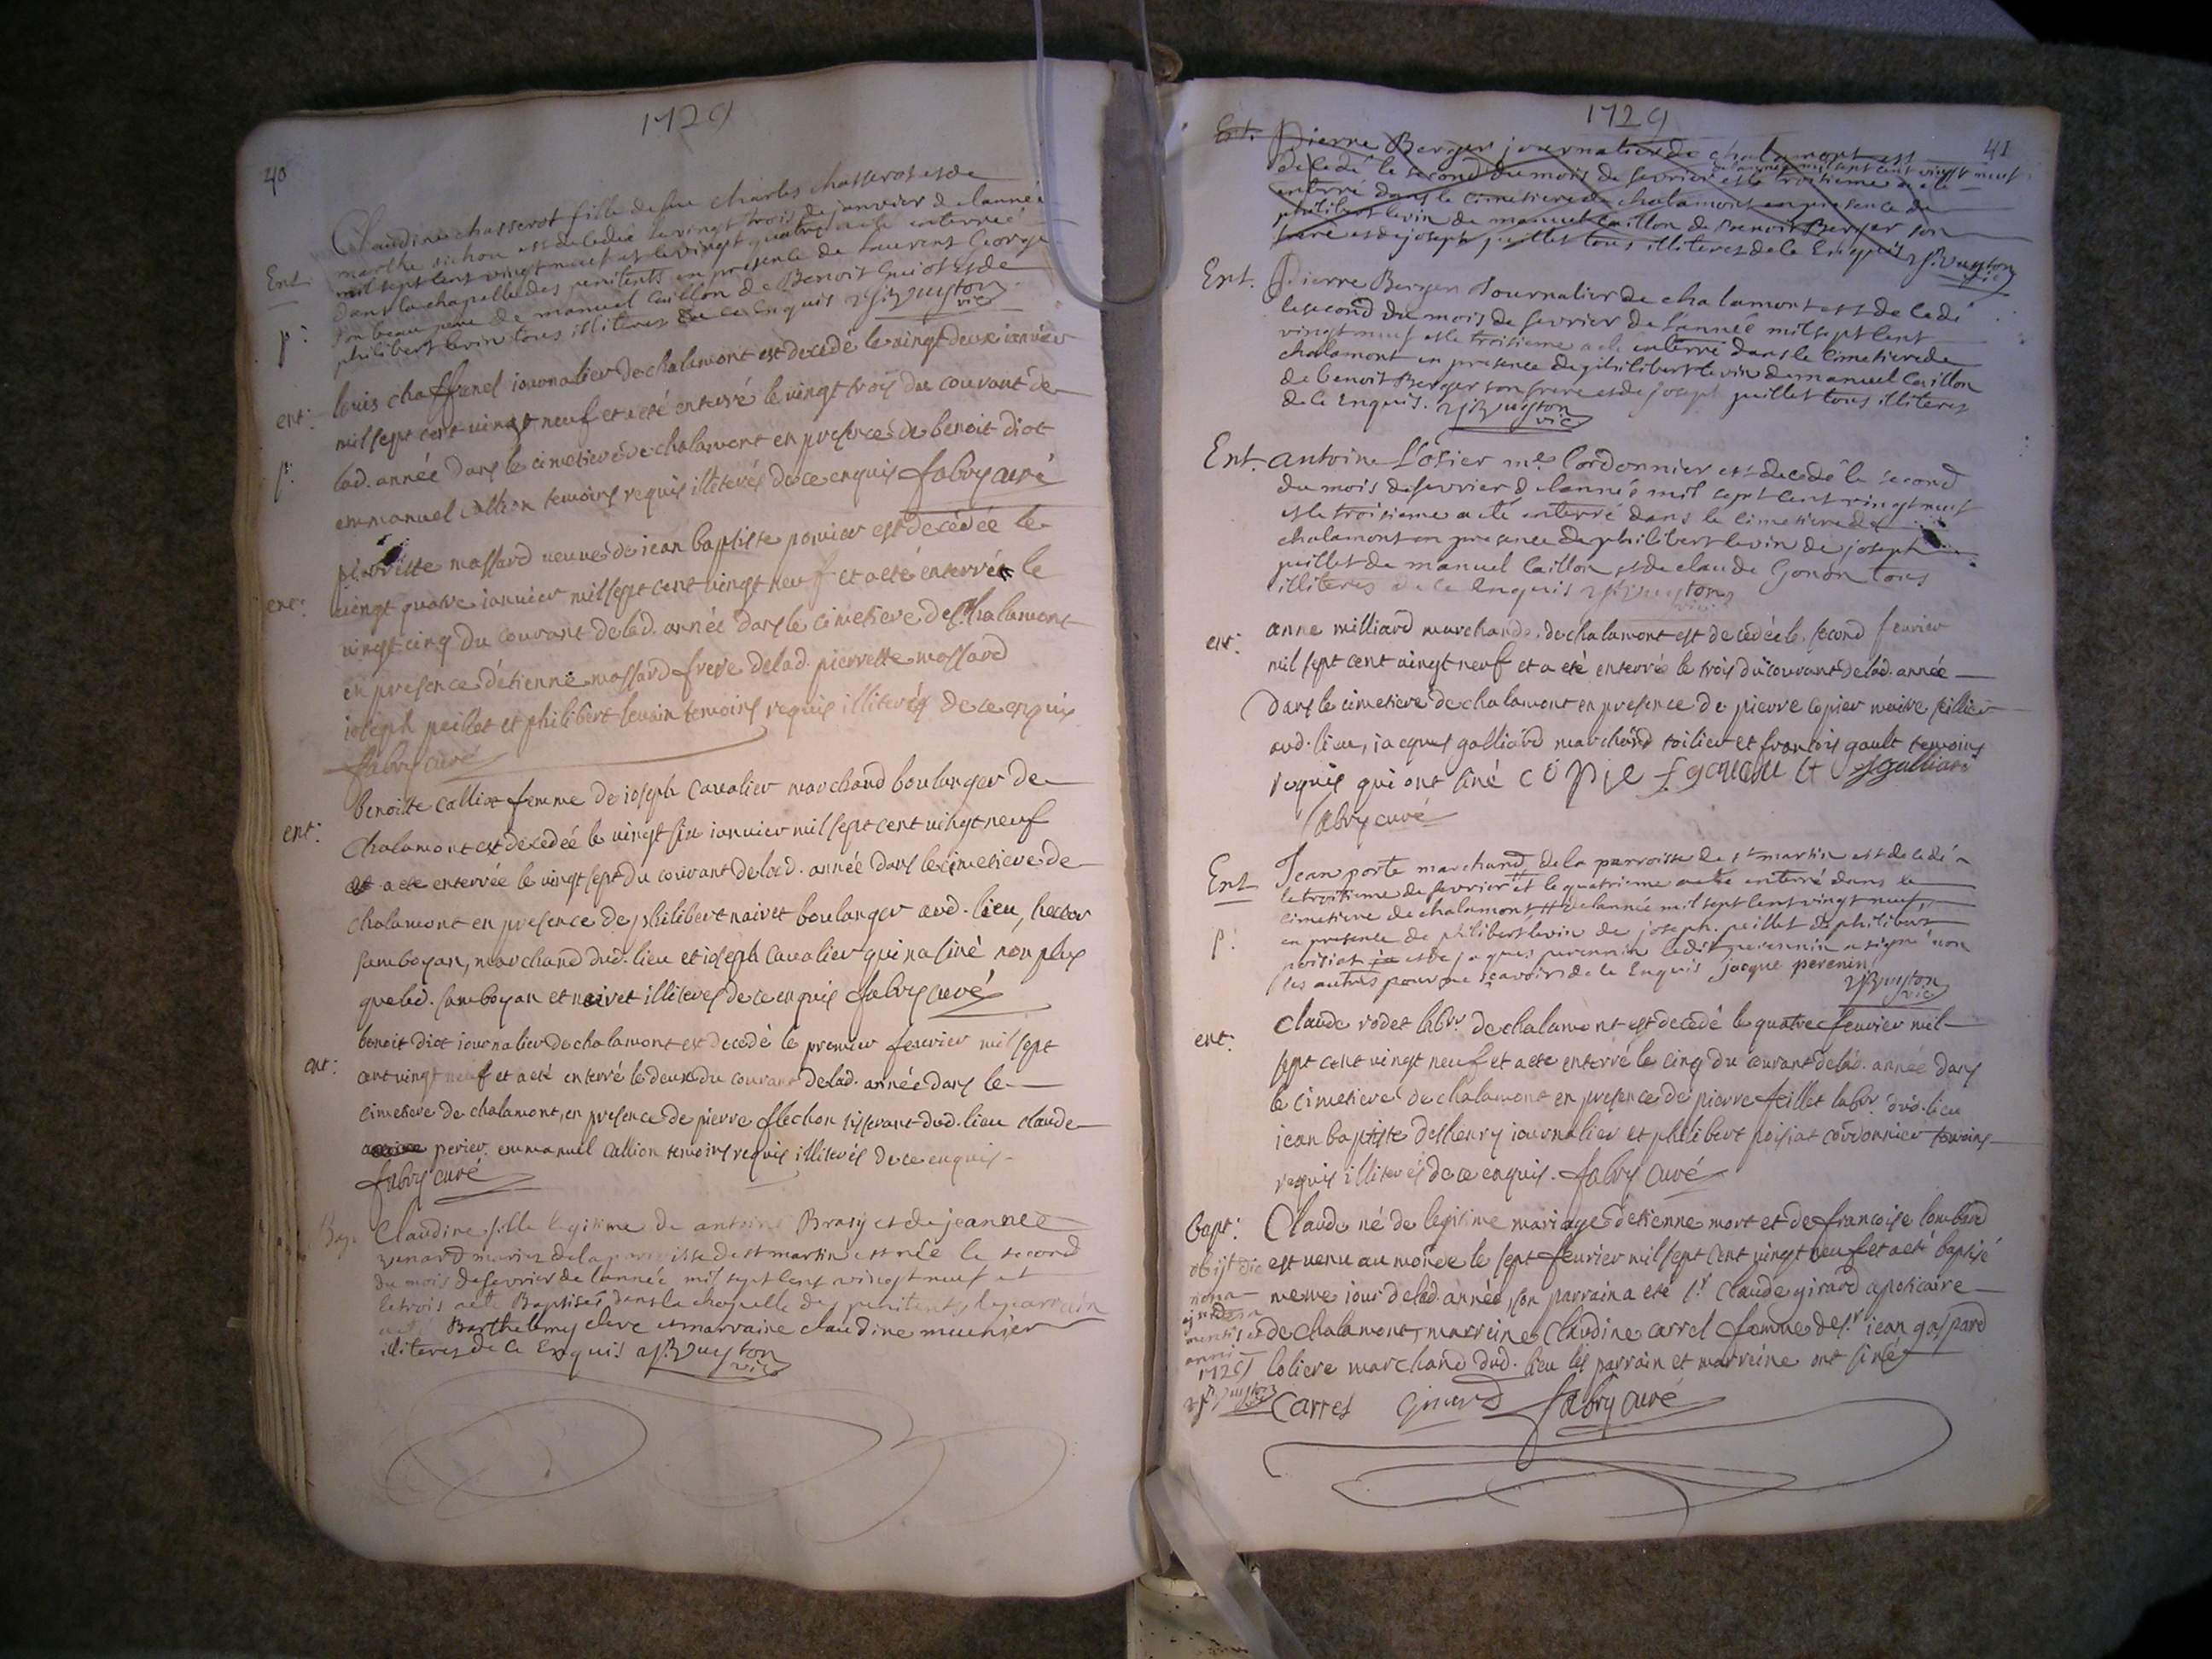 1729
40
Claudine chasserot fille de feu Charles chasserot et de
Ent. marthe sichon est decedée le vingt trois de janvier de lannée
mil sept cent vingt neuf et le vingt quatre a esté enterreé
dans la chapelle des penitents en presence de laurent George
p: son beau pere de manuel Caillon de Benoit Guiot et de
philibert levin tous illiteres de ce Enquis vic
louis chaffanel iournalier de chalamont est decedé le vingt deux ianvier
ent: mil sept cent vingt neuf et a eté enterré le vingt trois du courant de
lad. année dans le cimetiere de chalamont en presence de benoit diot
p: emmanuel callion temoins requis illiterés de ce enquis fabry curé
pierrette massard veuve de iean baptiste poivier est decedée le
ent: vingt quatre ianvier mil sept cent vingt neuf et a eté enterrée le
vingt cinq du courant de lad. année dans le cimetiere de Chalamont
en presence d'etienne massard frere de lad. pierrette massard
ioseph peillet et philibert levain temoins requis illiterés de ce enquis
fabry curé
benoitte calliot femme de ioseph Cavalier marchand boulanger de
ent: Chalamont est decedeé le vingt six ianvier mil sept cent vingt neuf
et a eté enterrée le vingt sept du courant de lad. année dans le cimetiere de
chalamont en presence de philibert naivet boulanger aud. lieu, hector
samboyan, marchand dud. lieu et ioseph Cavalier qui na siné non plus
que led. samboyan et naivet illiterés de ce enquis fabry curé
benoit diot iournalier de chalamont est decedé le premier fevrier mil sept
ent: cent vingt neuf et a eté enterré le deux du courant de lad. année dans le
cimetiere de chalamont, en presence de pierre flechon tisserant dud. lieu claude
perier. emmanuel Callion temoins requis illiterés de ce enquis
fabry curé
Bap. Claudine fille legitime de antoine Brasy et de jeanne
mariez de la parroisse de st martin est née le second
du mois de fevrier de lannée mil sept cent vingt neuf et
le trois a eté Baptisée dans la chapelle des penitents, le parrain
a eté Barthelemy clerc et marraine claudine meunier
illiteres de ce Enquis vic
1729
41
Ent. Pierre Berger journalier de chalamont est
decedé le second du mois de fevrier de lannée mil sept cent vingt neuf et le troisieme a eté
enterré dans le cimetiere de chalamont en presence de
philibert levin de manuel Caillon de Benoit Berger son
frere et de joseph peillet tous illiteres de ce Enquis vic
Ent. Pierre Berger Journalier de chalamont est decedé
le second du mois de fevrier de lannée mil sept cent
vingt neuf et le troisieme a eté enterré dans le cimetiere de
chalamont en presence de philibert levin de manuel Caillon
de benoit Berger son frere et de joseph peillet tous illiteres
de ce Enquis. vic
Ent. antoine Losier me Cordonnier est decedé le second
du mois de fevrier de lannée mil sept cent vingt neuf
et le troisieme a eté enterré dans le cimetiere de
chalamont en presence de philibert levin de joseph
peillet de manuel Caillon et de claude Gonon tous
illiteres de ce Enquis vic
anne milliard marchande de chalamont est decedée le second fevrier
ent: mil sept cent vingt neuf et a eté enterrée le trois du courant de lad. année
Dans le cimetiere de chalamont en presence de pierre copier maitre sellier
aud. lieu, iacques galliard marchand toilier et francois gault temoins
requis qui ont siné
fabry curé
Jean porte marchand de la parroisse de st martin est decedé
Ent le troisieme de fevrier et le quatrieme a eté enterré dans le
cimetiere de chalamont # de lannée mil sept cent vingt neuf
p: en presence de philibert levin de joseph peillet de philibert
poisiat et de jaques perennin ledit perennin a signé non
les autres pour ne sçavoir de ce Enquis jacque perenin
vic
Claude rodet labr. de chalamont est decedé le quatre fevrier mil
ent: sept cent vingt neuf et a eté enterré le cinq du courant de lad. année dans
le cimetiere de chalamont en presence de pierre feillet labr. dud. lieu
iean baptiste deshenry iournalier et philibert poisiat cordonnier temoins
requis illiterés de ce enquis. fabry curé
bapt: Claude né de legitime mariage d'etienne mort et de francoise lombard
obijt die est venu au monde le sept fevrier mil sept cent vingt neuf et a eté baptisé
nona meme iour de lad. année, son parrain a eté sr. Claude girard apoticaire
mensis de chalamont, marreine Claudine carrel femme de sr. iean gaspard
anni 1729 loliere marchand dud. lieu les parrain et marreine ont siné
Carrel Girard fabry curé